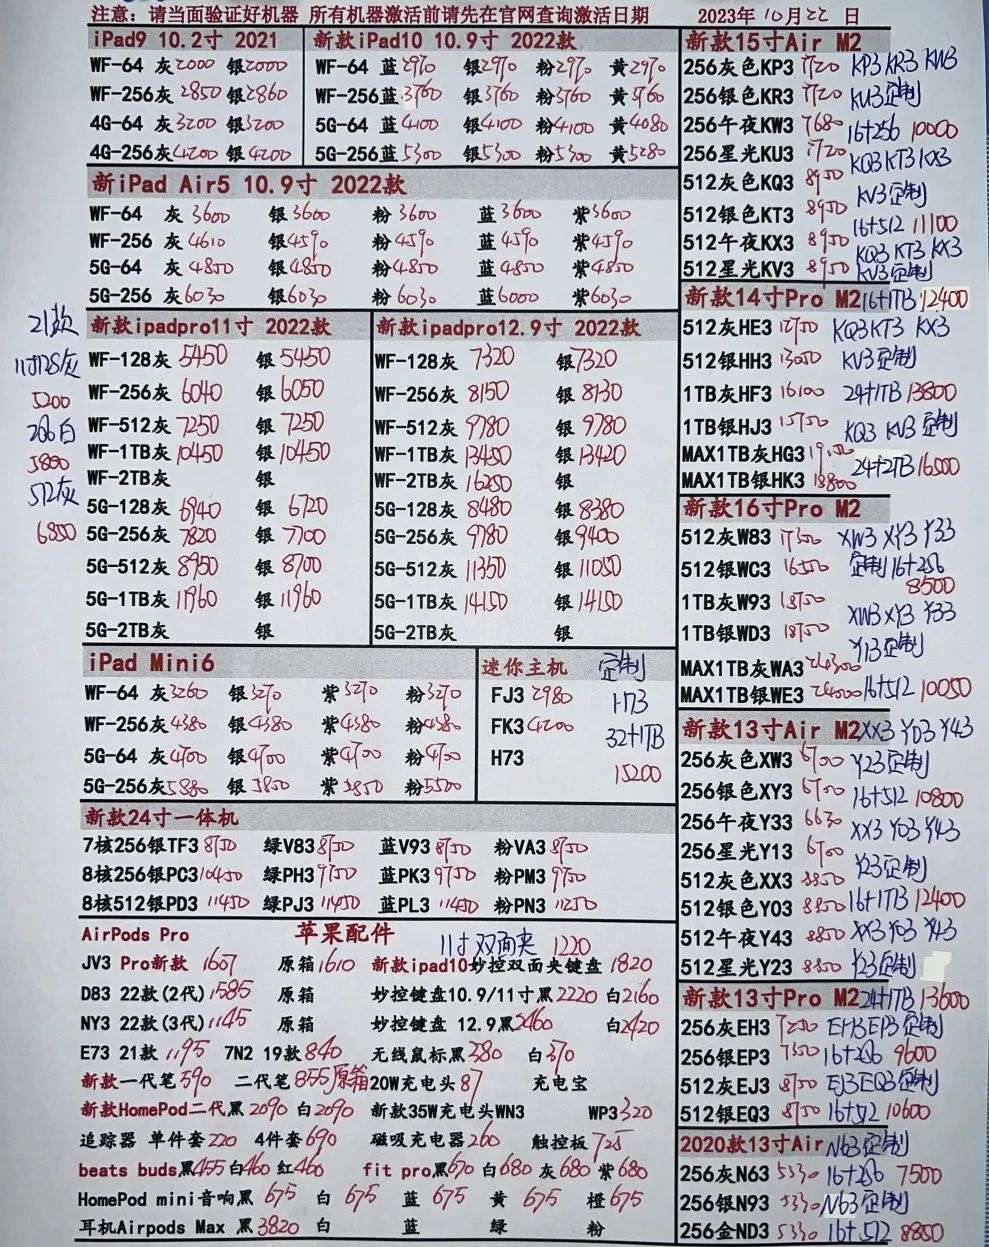 注意: 请当面验证好机器 所有机器激活前请先在官网查询激活日期
2023年 10月22 日
iPad9 10.2寸 2021
WF-64 灰2000 银2000
WF-256灰2850 银2860
4G-64 灰3200 银3200
4G-256灰4200 银4200
新款iPad10 10.9寸 2022款
WF-64 蓝2970 银2970 粉2970 黄2970
WF-256蓝3760 银3760 粉3760 黄3760
5G-64 蓝4100 银4100 粉4100 黄4080
5G-256蓝5300 银5300 粉5300 黄5280
新iPad Air5 10.9寸 2022款
WF-64 灰3600 银3600 粉3600 蓝3600 紫3600
WF-256 灰4610 银4590 粉4590 蓝4590 紫4590
5G-64 灰4850 银4850 粉4850 蓝4850 紫4850
5G-256 灰6030 银6030 粉6030 蓝6000 紫6030
21款
11寸128灰
5200
256白
5800
512灰
6850
新款ipadpro11寸 2022款
WF-128灰5450 银5450
WF-256灰6040 银6050
WF-512灰7250 银7250
WF-1TB灰10450 银10450
WF-2TB灰 银
5G-128灰6940 银6720
5G-256灰7820 银7700
5G-512灰8950 银8700
5G-1TB灰11960 银11960
5G-2TB灰 银
新款ipadpro12.9寸 2022款
WF-128灰7320 银7320
WF-256灰8150 银8130
WF-512灰9780 银9780
WF-1TB灰13450 银13420
WF-2TB灰16250 银
5G-128灰8480 银8380
5G-256灰9780 银9400
5G-512灰11350 银11050
5G-1TB灰14150 银14150
5G-2TB灰 银
iPad Mini6
WF-64 灰3260 银3270 紫3270 粉3270
WF-256灰4380 银4380 紫4380 粉4380
5G-64 灰4700 银4700 紫4700 粉4700
5G-256灰5880 银5850 紫5850 粉5500
迷你主机 定制
FJ3 2980
FK3 4200
H73
32+1TB
15200
新款24寸一体机
7核256银TF3 8750 绿V83 8750 蓝V93 8750 粉VA3 8750
8核256银PC3 10450 绿PH3 9750 蓝PK3 9750 粉PM3 9750
8核512银PD3 11450 绿PJ3 11450 蓝PL3 11450 粉PN3 11250
AirPods Pro 苹果配件 11寸双面夹 1220
JV3 Pro新款 1607 原箱1610 新款ipad10妙控双面夹键盘 1820
D83 22款(2代)1585 原箱 妙控键盘10.9/11寸黑2220 白2160
NY3 22款(3代)1145 原箱 妙控键盘 12.9黑2460 白2420
E73 21款 1195 7N2 19款840 无线鼠标黑380 白370
新款一代笔590 二代笔855原箱 20W充电头87 充电宝
新款HomePod二代黑2090 白2090 新款35W充电头WN3 WP3 320
追踪器 单件套220 4件套690 磁吸充电器260 触控板725
beats buds黑455 白460 红460 fit pro黑670 白680 灰680 紫680
HomePod mini音响黑 675 白 675 蓝 675 黄 675 橙675
耳机Airpods Max 黑3820 白 蓝 绿 粉
新款15寸Air M2
256灰色KP3 7720 KP3 KR3 KW3
256银色KR3 7720 KU3定制
256午夜KW3 7680 16+256 10000
256星光KU3 7720 KQ3 KT3 KX3
512灰色KQ3 8950 KV3定制
512银色KT3 8950 16+512 11100
512午夜KX3 8950 KQ3 KT3 KX3
512星光KV3 8950 KV3定制
新款14寸Pro M2 16+1TB 12400
512灰HE3 12750 KQ3 KT3 KX3
512银HH3 13050 KV3定制
1TB灰HF3 16100 24+1TB 13800
1TB银HJ3 15750 KQ3 KV3定制
MAX1TB灰HG3
MAX1TB银HK3 18800 24+2TB 16500
新款16寸Pro M2
512灰W83 17300 XW3 XY3 Y33
512银WC3 16500 定制16+256
8500
1TB灰W93 18750 XW3 XY3 Y33
1TB银WD3 18750 Y13定制
MAX1TB灰WA3 24300
MAX1TB银WE3 24000 16+512 10050
新款13寸Air M2 XX3 Y03 Y43
256灰色XW3 6700 Y23定制
256银色XY3 6700 16+512 10800
256午夜Y33 6630 XX3 Y03 Y43
256星光Y13 6700 Y23定制
512灰色XX3 8850 16+1TB 12400
512银色Y03 8850 XX3 Y03 Y43
512午夜Y43 8850
512星光Y23 8850 Y23定制
新款13寸Pro M2 24+1TB 13600
256灰EH3 7250 EH3EP3定制
256银EP3 7350 16+256 9600
512灰EJ3 8750 EJ3EQ3定制
512银EQ3 8750 16+512 10600
2020款13寸Air N63定制
256灰N63 5330 16+256 7500
256银N93 5330 N63定制
256金ND3 5330 16+512 8850